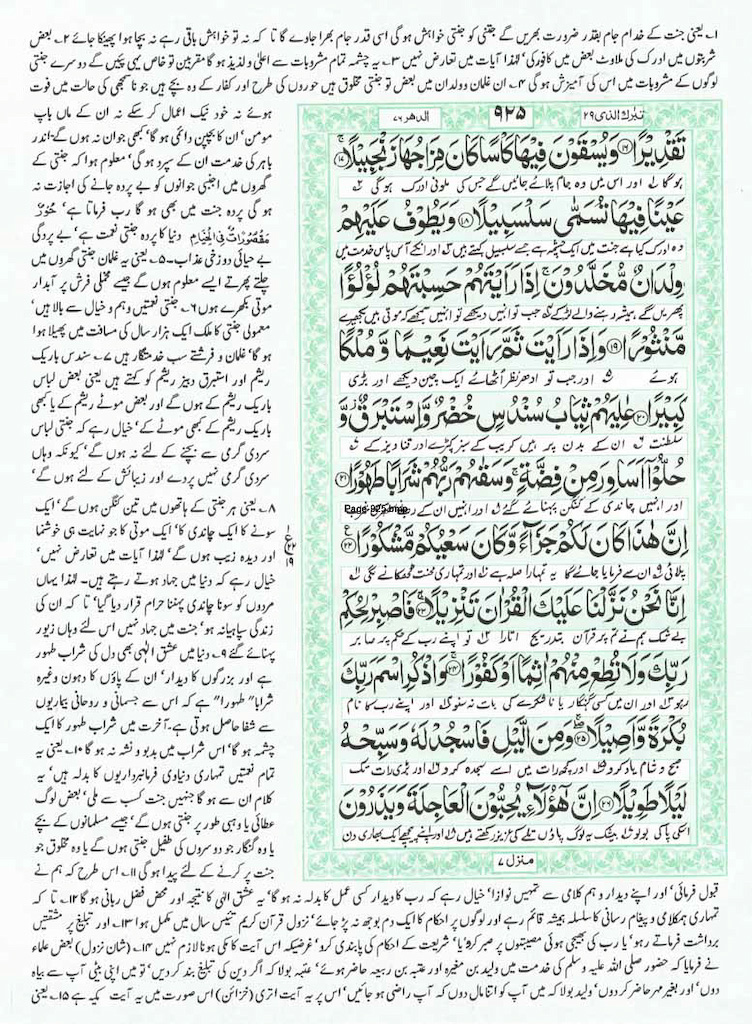 ۱۔ یعنی جنت کے خدام جام بقدر ضرورت بھریں گے جتنی کو جنتی خواہش ہوگی اسی قدر جام بھرا جاوے گا تا کہ نہ تو خواہش باقی رہے نہ بچا ہوا پھینکا جائے ۲۔ بعض
شربتوں میں ادرک کی ملاوٹ بعض میں کافور کی' لہٰذا آیات میں تعارض نہیں ۳۔ یہ چشمہ تمام مشروبات سے اعلیٰ و لذیذ ہو گا مقربین تو خاص یہی پیئں گے دوسرے جنتی
لوگوں کے مشروبات میں اس کی آمیزش ہو گی ۴۔ ان غلمان و ولدان میں بعض تو جنتی مخلوق ہیں حوروں کی طرح اور کفار کے وہ بچے ہیں جو نا سمجھی کی حالت میں فوت
تبٰرک الذی ۲۹
۹۲۵
الدھر ۷۶
تَقْدِيْرًا ۝ وَيُسْقَوْنَ فِيْهَا كَاْسًا كَانَ مِزَاجُهَا زَنْجَبِيْلًا
ہوگا اور اس میں وہ جام پلائے جائیں گے جس کی ملونی ادرک ہوگی
عَيْنًا فِيْهَا تُسَمّٰى سَلْسَبِيْلًا ۝ وَيَطُوْفُ عَلَيْهِمْ
وہ ادرک کیا ہے جنت میں ایک چشمہ ہے جسے سلسبیل کہتے ہیں اور انکے آس پاس خدمت میں
وِلْدَانٌ مُّخَلَّدُوْنَ ۚ اِذَا رَاَيْتَهُمْ حَسِبْتَهُمْ لُؤْلُؤًا
پھریں گے ہمیشہ رہنے والے لڑکے جب تو انہیں دیکھے تو انہیں سمجھے کہ موتی ہیں بکھیرے
مَّنْثُوْرًا ۝ وَاِذَا رَاَيْتَ ثَمَّ رَاَيْتَ نَعِيْمًا وَّمُلْكًا
ہوئے اور جب تو ادھر نظر اٹھائے ایک چین دیکھے اور بڑی
كَبِيْرًا ۝ عٰلِيَهُمْ ثِيَابُ سُنْدُسٍ خُضْرٌ وَّاِسْتَبْرَقٌ ۡ وَّ
سلطنت ان کے بدن پر ہیں کریب کے سبز کپڑے اور قنادیز کے
حُلُّوْٓا اَسَاوِرَ مِنْ فِضَّةٍ ۚ وَسَقٰىهُمْ رَبُّهُمْ شَرَابًا طَهُوْرًا ۝
اور انہیں چاندی کے کنگن پہنائے گئے اور انہیں ان کے رب نے
Page-925.bmp
اِنَّ هٰذَا كَانَ لَكُمْ جَزَآءً وَّكَانَ سَعْيُكُمْ مَّشْكُوْرًا ۝
پلائی ان سے فرمایا جائے گا یہ تمہارا صلہ ہے اور تمہاری محنت ٹھکانے لگی
اِنَّا نَحْنُ نَزَّلْنَا عَلَيْكَ الْقُرْاٰنَ تَنْزِيْلًا ۝ فَاصْبِرْ لِحُكْمِ
بے شک ہم نے تم پر قرآن بتدریج اتارا تو اپنے رب کے حکم پر صابر
رَبِّكَ وَلَا تُطِعْ مِنْهُمْ اٰثِمًا اَوْ كَفُوْرًا ۝ وَاذْكُرِ اسْمَ رَبِّكَ
رہو اور ان میں کسی گنہگار یا ناشکرے کی بات نہ سنو اور اپنے رب کا نام
بُكْرَةً وَّاَصِيْلًا ۝ وَمِنَ الَّيْلِ فَاسْجُدْ لَهٗ وَسَبِّحْهُ
صبح و شام یاد کرو اور کچھ رات میں اسے سجدہ کرو اور بڑی رات تک
لَيْلًا طَوِيْلًا ۝ اِنَّ هٰٓؤُلَآءِ يُحِبُّوْنَ الْعَاجِلَةَ وَيَذَرُوْنَ
اسکی پاکی بولو بیشک یہ لوگ پاؤں تلے کی عزیز رکھتے ہیں اور اپنے پیچھے ایک بھاری دن
منزل ۷
ہوئے نہ خود نیک اعمال کر سکے نہ ان کے ماں باپ
مومن' ان کا بچپن دائمی ہو گا' کبھی جوان نہ ہوں گے۔ اندر
باہر کی خدمت ان کے سپرد ہو گی' معلوم ہوا کہ جنتی کے
گھروں میں اجنبی جوانوں کو بے پردہ جانے کی اجازت نہ
ہو گی پردہ جنت میں بھی ہو گا رب فرماتا ہے' حُوْرٌ
مَّقْصُوْرٰتٌ فِی الْخِیَامِ دنیا کا پردہ جنتی نعمت ہے' بے پردگی
بے حیائی دوزخی عذاب۔ ۵۔ یعنی یہ غلمان جنتی گھروں میں
چلتے پھرتے ایسے معلوم ہوں گے جیسے مخملی فرش پر آبدار
موتی بکھرے ہوں ۶۔ جنتی نعمتیں وہم و خیال سے بالا ہیں'
معمولی جنتی کا ملک ایک ہزار سال کی مسافت میں پھیلا ہوا
ہو گا' غلمان و فرشتے سب خدمتگار ہیں ۷۔ سندس باریک
ریشم اور استبرق دبیز ریشم کو کہتے ہیں یعنی بعض لباس
باریک ریشم کے ہوں گے اور بعض موٹے ریشم کے یا کبھی
باریک ریشم کے کبھی موٹے کے' خیال رہے کہ جنتی لباس
سردی گرمی سے بچنے کے لئے نہ ہوں گے' کیونکہ وہاں
سردی گرمی نہیں پردے اور زیبائش کے لئے ہوں گے'
۸۔ یعنی ہر جنتی کے ہاتھوں میں تین کنگن ہوں گے' ایک
سونے کا ایک چاندی کا' ایک موتی کا جو نہایت ہی خوشنما
اور دیدہ زیب ہوں گے' لہٰذا آیات میں تعارض نہیں'
خیال رہے کہ دنیا میں جہاد ہوتے رہتے ہیں۔ لہٰذا یہاں
مردوں کو سونا چاندی پہننا حرام قرار دیا گیا' تا کہ ان کی
زندگی سپاہیانہ ہو' جنت میں جہاد نہیں اس لئے وہاں زیور
پہنائے گئے ۹۔ دنیا میں عشق الٰہی بھی دل کی شراب طہور
ہے اور بزرگوں کا دیدار' ان کے پاؤں کا دھوون وغیرہ
شرابا" طہورا" ہے کہ اس سے جسمانی و روحانی بیماریوں
سے شفا حاصل ہوتی ہے۔ آخرت میں شراب طہور کا ایک
چشمہ ہو گا' اس شراب میں بدبو و نشہ نہ ہو گا ۱۰۔ یعنی یہ
تمام نعمتیں تمہاری دنیاوی فرمانبرداریوں کا بدلہ ہیں' یہ
کلام ان سے ہو گا جنہیں جنت کسب سے ملی' بعض لوگ
عطائی یا وہبی طور پر جنتی ہوں گے' جیسے مسلمانوں کے بچے
یا وہ گنہگار جو دوسروں کی طفیل جنتی ہوں گے یا وہ مخلوق جو
جنت پر کرنے کے لئے پیدا ہو گی ۱۱۔ اس طرح کہ ہم نے
ع
۱۹
قبول فرمائی' اور اپنے دیدار و ہم کلامی سے تمہیں نوازا' خیال رہے کہ رب کا دیدار کسی عمل کا بدلہ نہ ہو گا' یہ عشق الٰہی کا نتیجہ اور محض فضل ربانی ہو گا ۱۲۔ تا کہ
تمہاری ہمکلامی و پیغام رسانی کا سلسلہ ہمیشہ قائم رہے اور لوگوں پر احکام کا ایک دم بوجھ نہ پڑ جائے' نزول قرآن کریم تئیس سال میں مکمل ہوا ۱۳۔ اور تبلیغ پر مشقتیں
برداشت فرماتے رہو' یا رب کی بھیجی ہوئی مصیبتوں پر صبر کرو' یا' شریعت کے احکام کی پابندی کرو' غرضیکہ اس آیت کا مکی ہونا لازم نہیں ۱۴۔ (شان نزول) بعض علماء
نے فرمایا کہ حضور صلی اللہ علیہ وسلم کی خدمت میں ولید بن مغیرہ اور عتبہ بن ربیعہ حاضر ہوئے' عتبہ بولا کہ اگر دین کی تبلیغ بند کر دیں' تو میں اپنی بیٹی آپ سے بیاہ
دوں' اور بغیر مہر حاضر کر دوں' ولید بولا کہ میں آپ کو اتنا مال دوں کہ آپ راضی ہو جائیں' اس پر یہ آیت اتری (خزائن) اس صورت میں یہ آیت مکیہ ہے ۱۵۔ یعنی